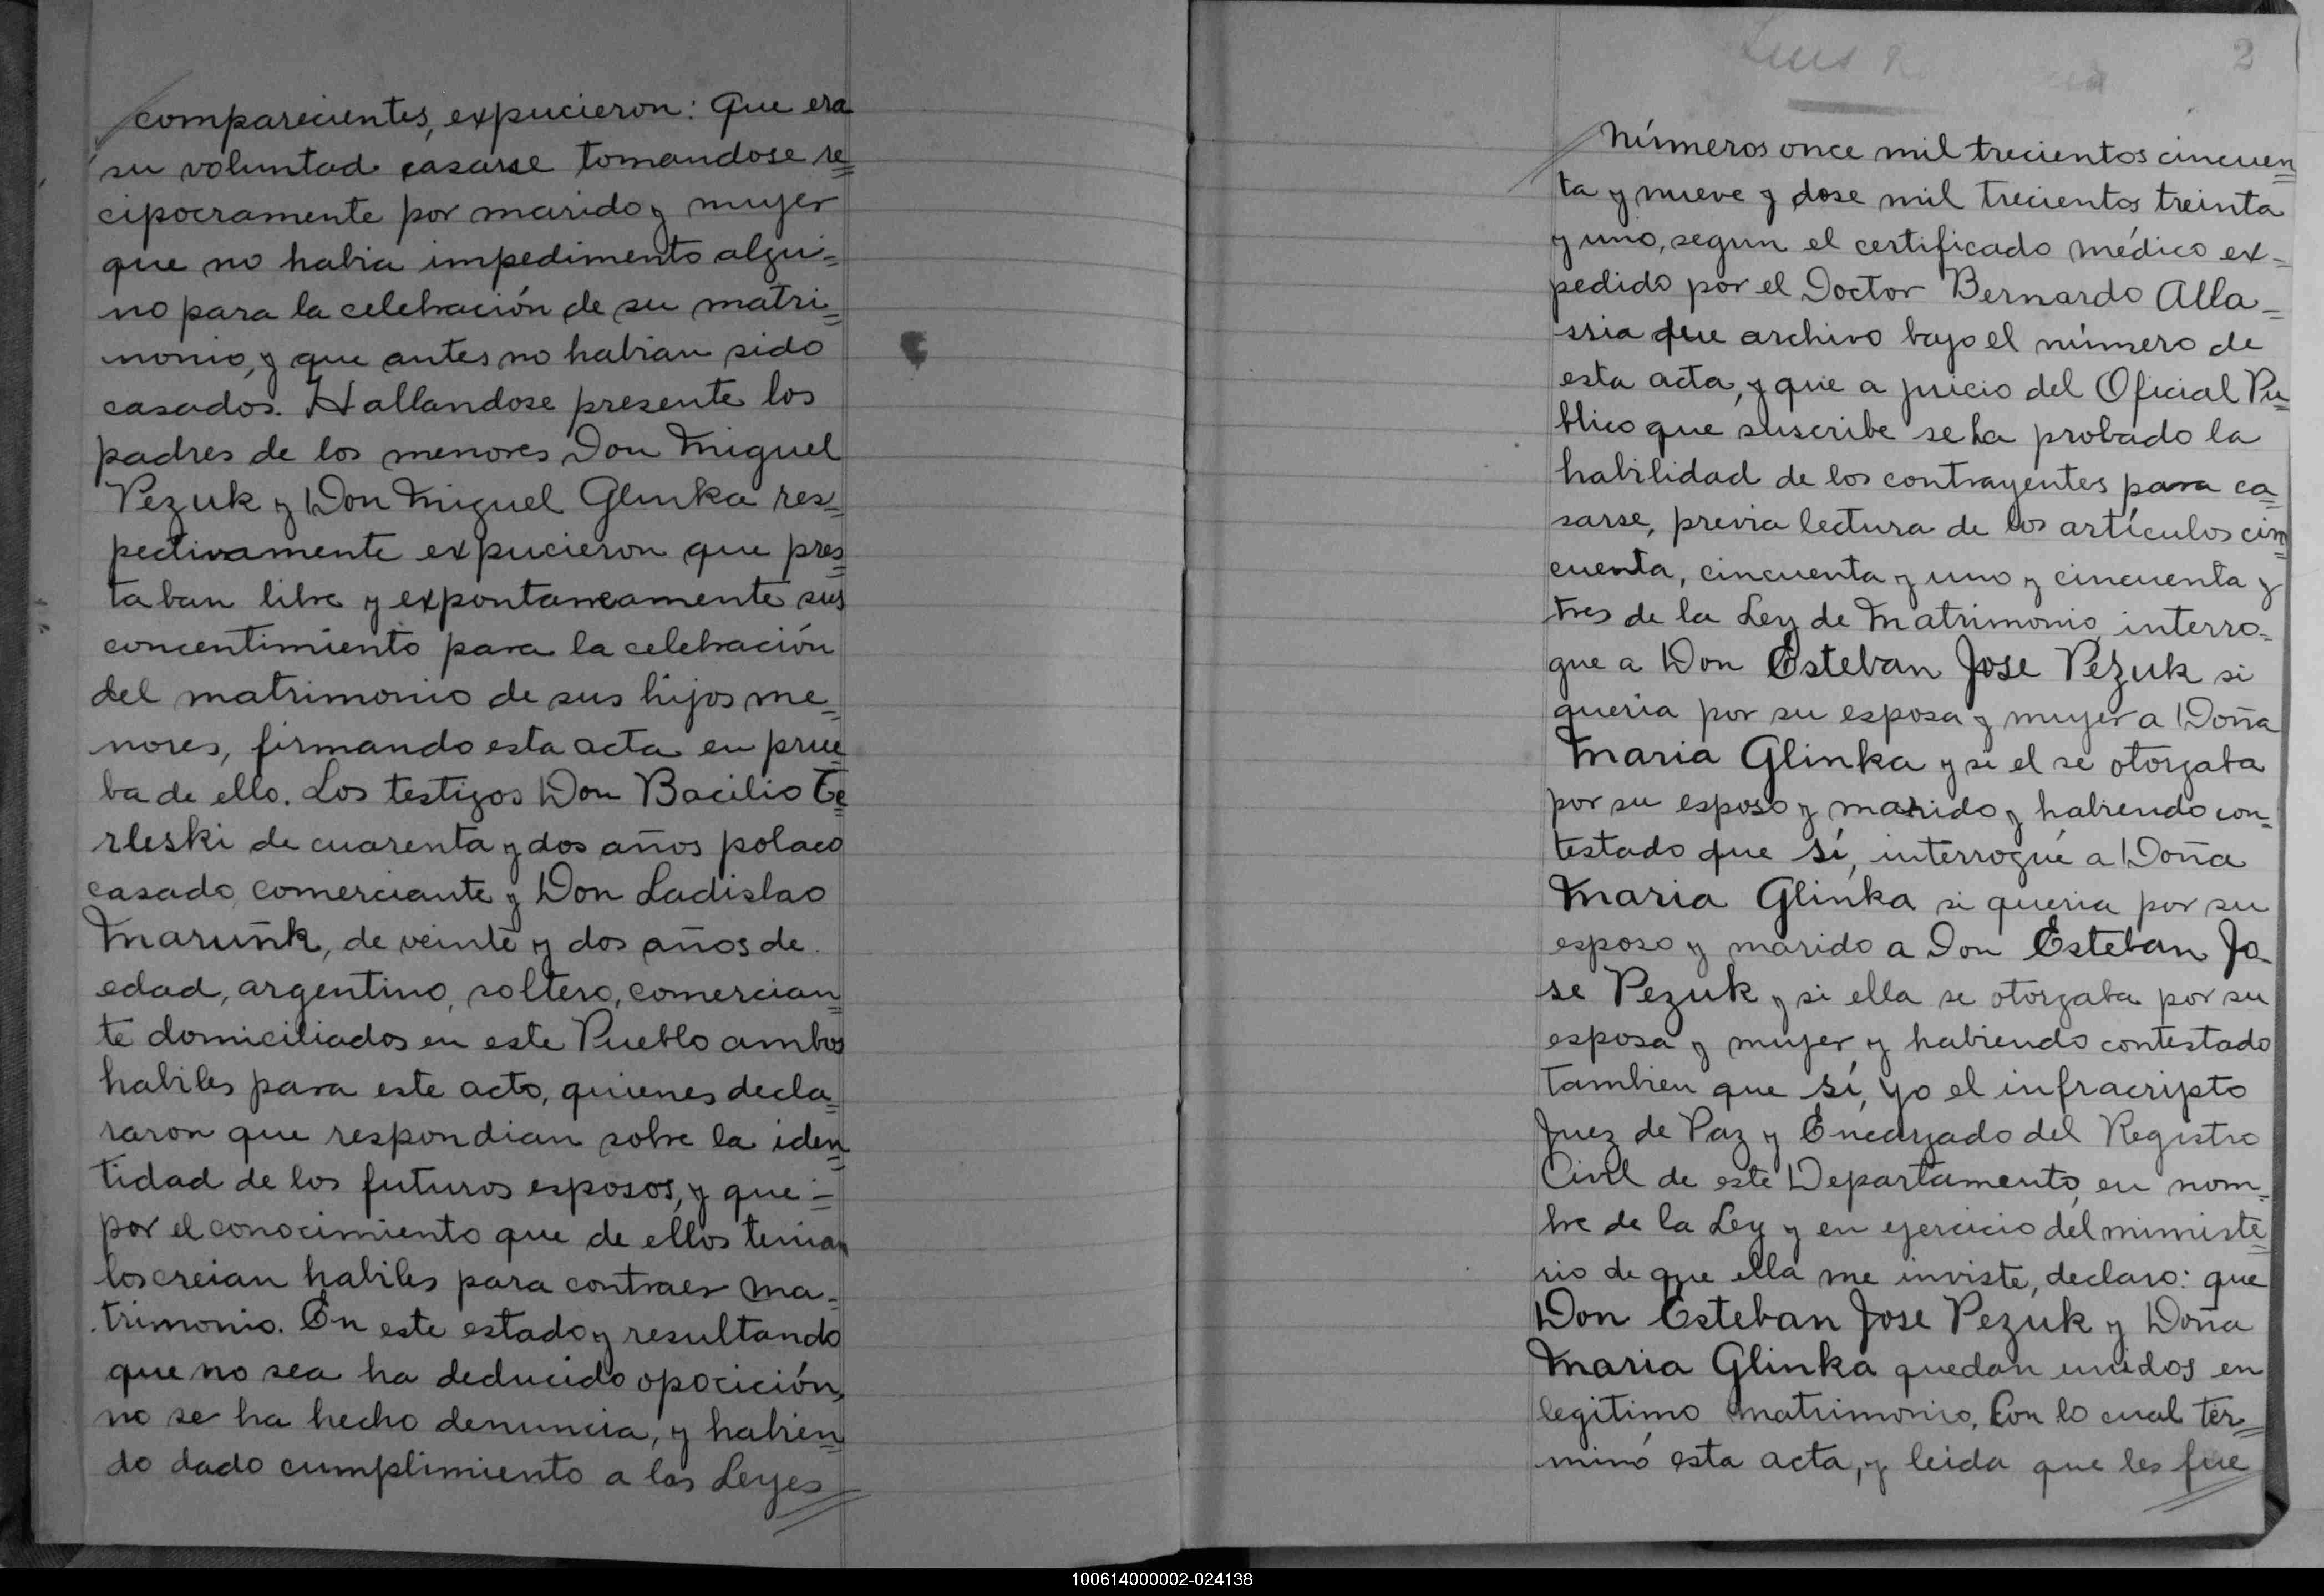 comparecientes, expucieron: que era
su voluntad casarse tomandose re=
cipocramente por marido y mujer
que no habia impedimento algu=
no para la celebración de su matri=
monio, y que antes no habian sido
casados. Hallandose presente los
padres de los menores Don Miguel
Pezuk y Don Miguel Glinka res=
pectivamente expucieron que pres=
taban libre y expontaneamente sus
concentimiento para la celebración
del matrimonio de sus hijos me=
nores, firmando esta acta en prue=
ba de ello. Los testigos Don Bacilio Te=
rleski de cuarenta y dos años polaco
casado, comerciante y Don Ladislao
de veinte y dos años de
edad, argentino, soltero, comercian=
te domiciliados en este Pueblo ambos
habiles para este acto, quienes decla=
raron que respondian sobre la iden=
tidad de los futuros esposos, y que =
por el conocimiento que de ellos tenian
los creian habiles para contraer ma=
trimonio. En este estado y resultando
que no sea ha deducido oposición,
no se ha hecho denuncia, y habien=
do dado cumplimiento a las Leyes
2
Luis
Números once mil trecientos cincuen=
ta y nueve y dose mil trecientos treinta
y uno, segun el certificado médico ex=
pedido por el Doctor Bernardo Alla=
ssia que archivo bajo el número de
esta acta, y que a juicio del Oficial Pu=
blico que suscribe se ha probado la
habilidad de los contrayentes para ca=
sarse, previa lectura de los artículos cin=
cuenta, cincuenta y uno y cincuenta y
tres de la Ley de Matrimonio, interro=
gue a Don Esteban Jose Pezuk si
queria por su esposa y mujer a Doña
Maria Glinka y si el se otorgaba
por su esposo y marido y habiendo con=
testado que sí, interrogué a Doña
Maria Glinka si queria por su
esposo y marido a Don Esteban Jo=
se Pezuk y si ella se otorgaba por su
esposa y mujer y habiendo contestado
tambien que sí, yo el infracripto
Juez de Paz y Encargado del Registro
Civil de este Departamento, en nom=
bre de la Ley y en ejercicio del ministe=
rio de que ella me inviste, declaro: que
Don Esteban Jose Pezuk y Doña
Maria Glinka quedan unidos en
legitimo matrimonio. Con lo cual ter=
minó esta acta, y leida que les fue
100614000002-024138